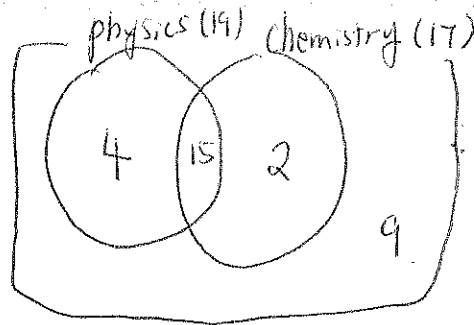 physics (19) chemistry (17)
4 15 2
9